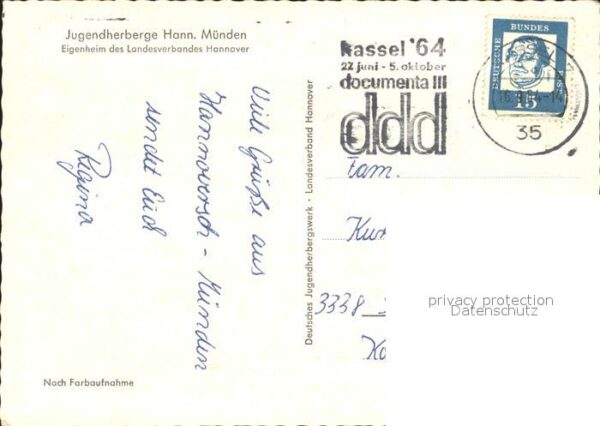 Jugendherberge Hann. Münden
Eigenheim des Landesverbandes Hannover
Viele Grüße aus
Hannoversch-Münden
sendet Euch
Regina
Nach Farbaufnahme
Deutsches Jugendherbergswerk · Landesverband Hannover
kassel '64
27 juni - 5. oktober
documenta III
ddd
DEUTSCHE
BUNDES
POST
15
35
Fam.
3338
privacy protection
Datenschutz